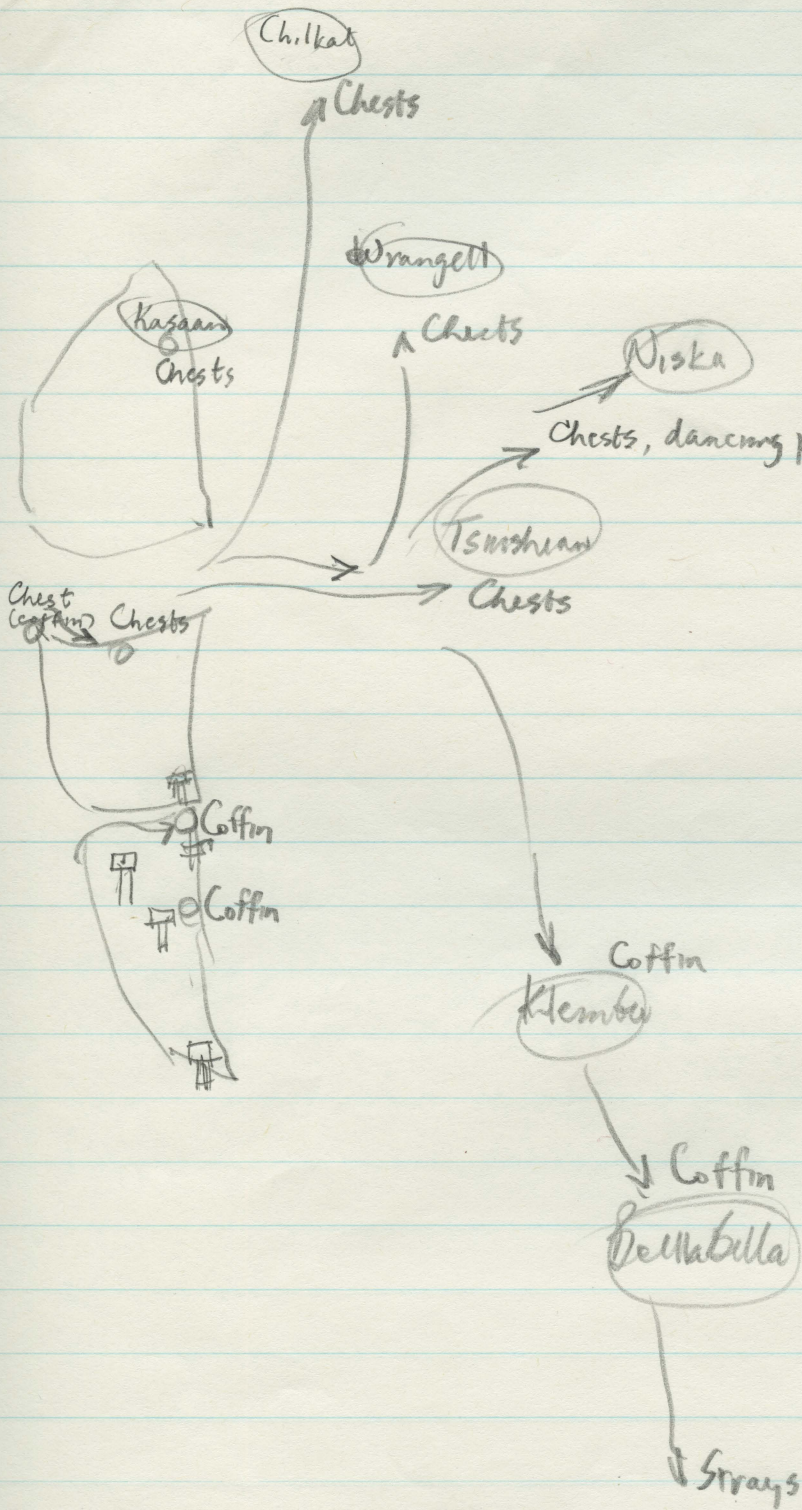 Chilkat
Chests
Wrangell
Chests
Kasaan
Chests
Niska
Chests, dancing
Tsimshian
Chests
Chest
(coffin)
Chests
Coffin
Coffin
Coffin
Klemtu
Coffin
Bellabella
Strays